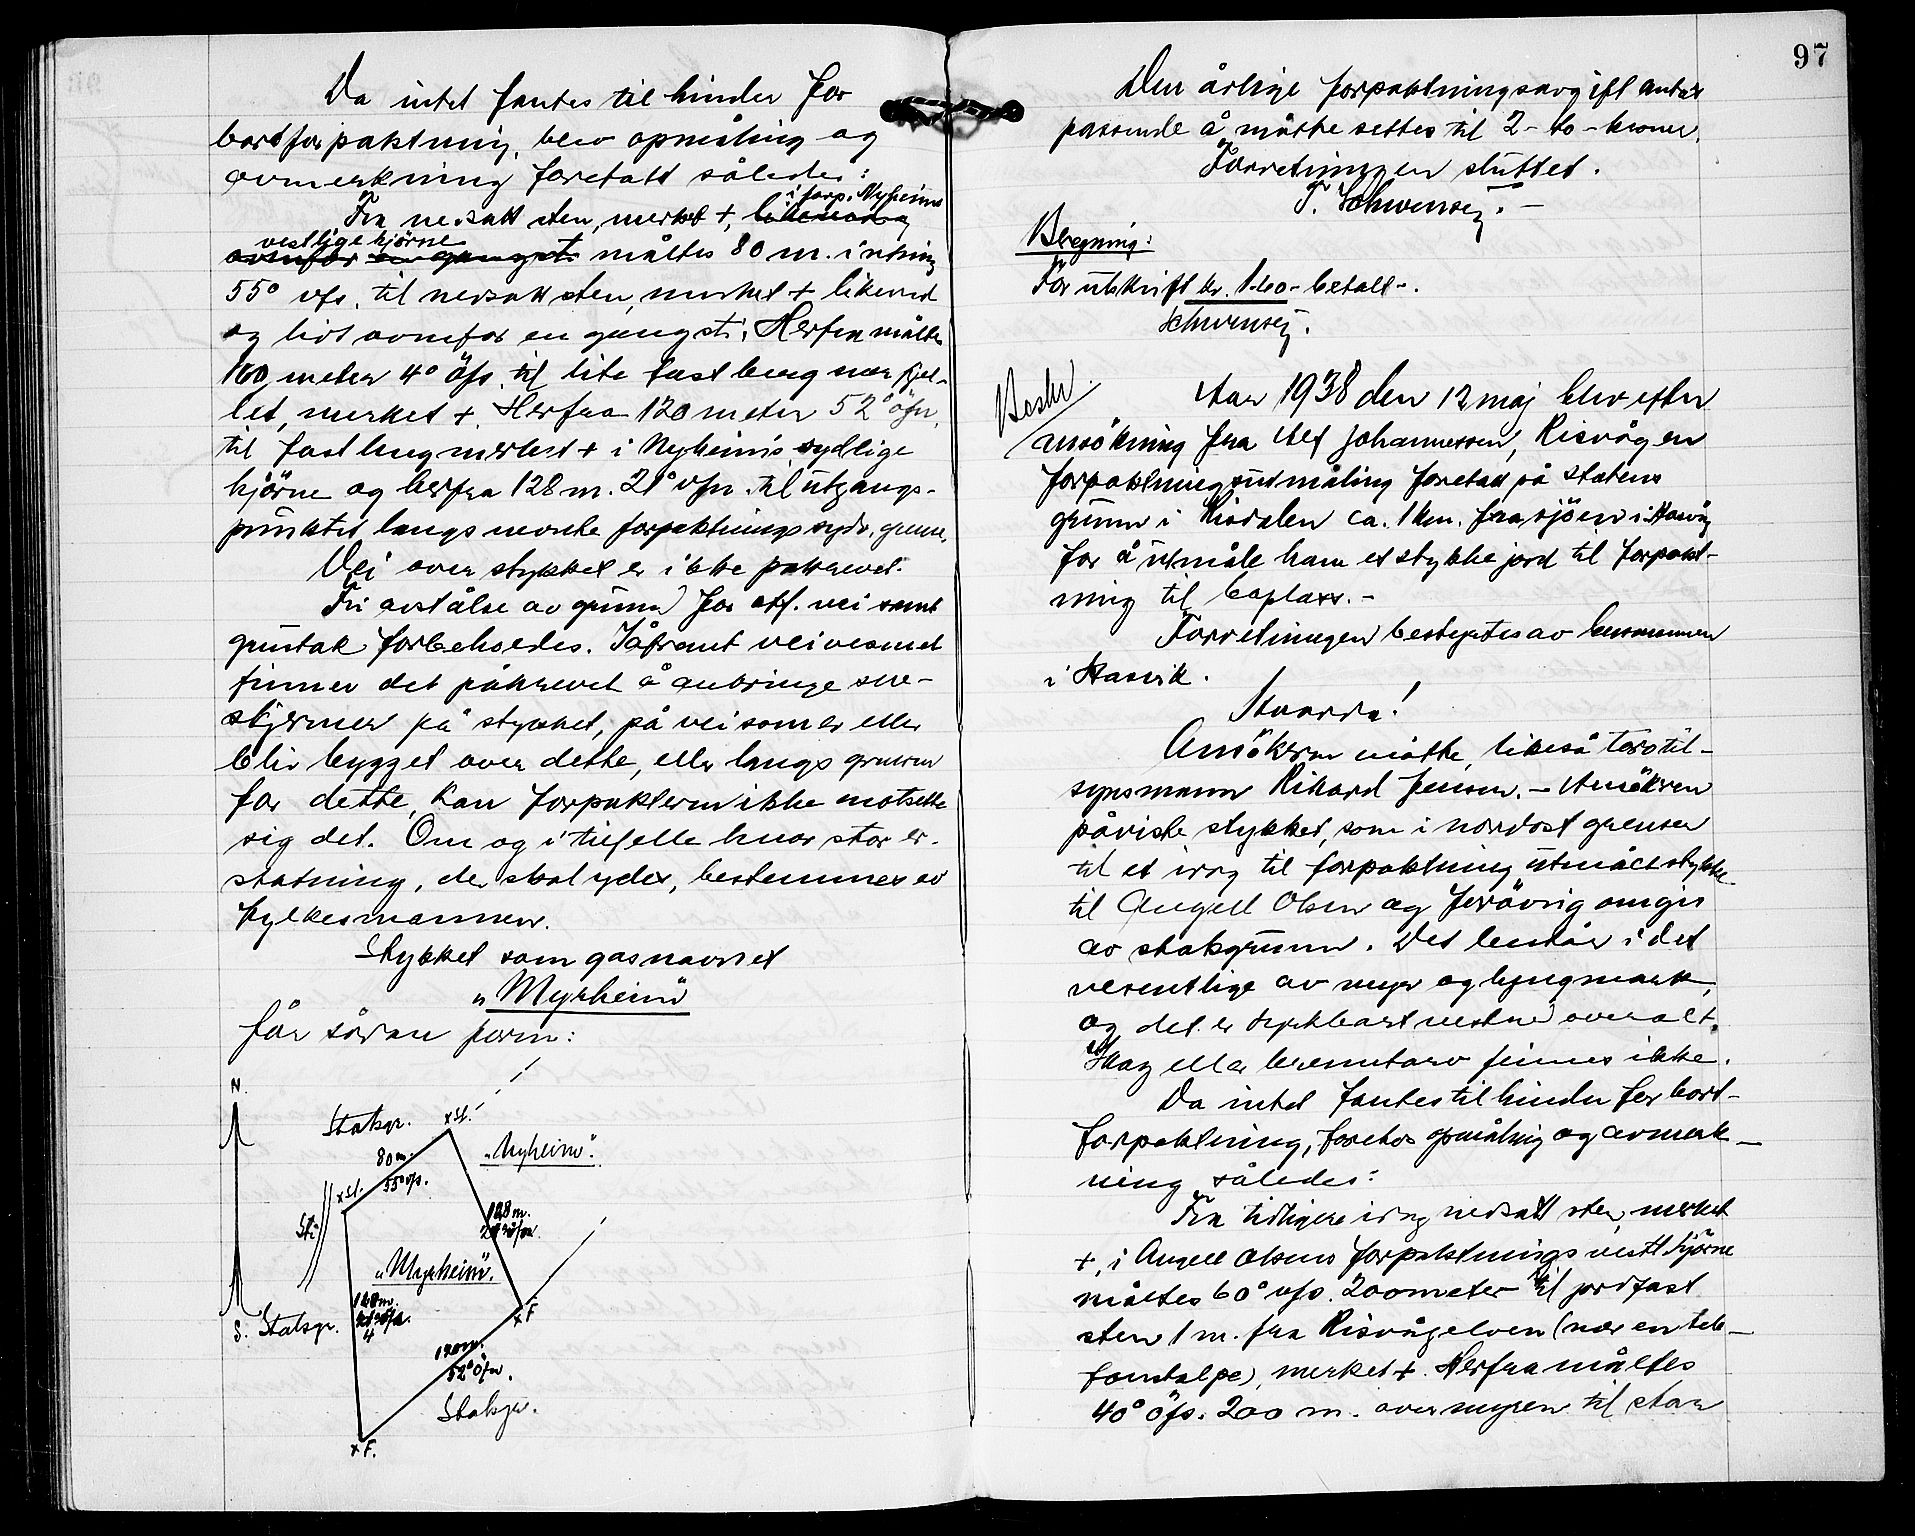 Da intet fantes til hinder for
bortforpaktning, blev opmåling og
avmerkning foretatt således:
i forp. Nyheims
Fra nedsatt sten, merket +,
vestlige hjörne
måltes 80 m. i retning
55° vfs. til nedsatt sten, merket + likeved
og litt ovenfor en gangsti. Herfra måltes
160 meter 4° öfs. til lite fast berg nær fjel-
let, merket +. Herfra 120 meter 52° öfn.
til fast berg merket + i Nyheims sydlige
hjörne og herfra 128 m. 21° vfn. til utgangs-
punktet langs nevnte forpaktnings sydv. grense.
Vei over stykket er ikke påkrevet.
Fri avståelse av grunn for off. vei samt
grustak forbeholdes. Såfremt veivesenet
finner det påkrevet å anbringe sne-
skjermer på stykket, på vei som er eller
blir bygget over dette, eller langs grensen
for dette, kan forpakteren ikke motsette
sig det. Om og i tilfelle hvor stor er-
statning, der skal ydes, bestemmes av
fylkesmannen.
Stykket som gas navnet
"Myrheim"
får sådan form:
N.
Statsgr.
x St.
80 m.
55° vfs.
"Nyheim".
x St.
Sti
128 m.
21°
"Myrheim".
4
S.
Statsgr.
x F
120 m.
52° öfn.
Statsgr.
x F.
97
Den årlige forpaktningsavgift antas
passende å måtte settes til 2 - to - kroner.
Forretningen sluttet.
T. Schwensey. -
Beregning:
För utskrift kr. 1.60 - betalt -.
Schwensey.
Beskr.
Aar 1938 den 12 maj blev efter
ansökning fra Alf Johannessen, Risvåg en
forpaktningsutmåling foretatt på statens
grunn i Risdalen ca. 1 km. fra sjöen i Risvåg
for å utmåle ham et stykke jord til forpakt-
ning til boplass. -
Forretningen bestyrtes av lensmannen
i Hasvik.
Hvorda!
Ansökeren mötte, likeså torvtil-
synsmann Rikard Jensen. - Ansökeren
påviste stykket, som i nordost grenser
til et idag til forpaktning utmålt stykke
til Angell Olsen og forövrig omgis
av statsgrunn. Det består i det
vesentlige av myr og lyngmark,
og det er dyrkbart nesten overalt.
Skog eller brenntorv finnes ikke.
Da intet fantes til hinder for bort-
forpaktning, foretos opmåling og avmerk-
ning således:
Fra tidligere idag nedsatt sten, merket
+, i Angell Olsens forpaktnings vestl. hjörne
måltes 60° vfs. 200 meter til jordfast
sten 1 m. fra Risvågelven (nær en tele-
fonstolpe), merket +. Herfra måltes
40° öfs. 200 m. over myren til stor